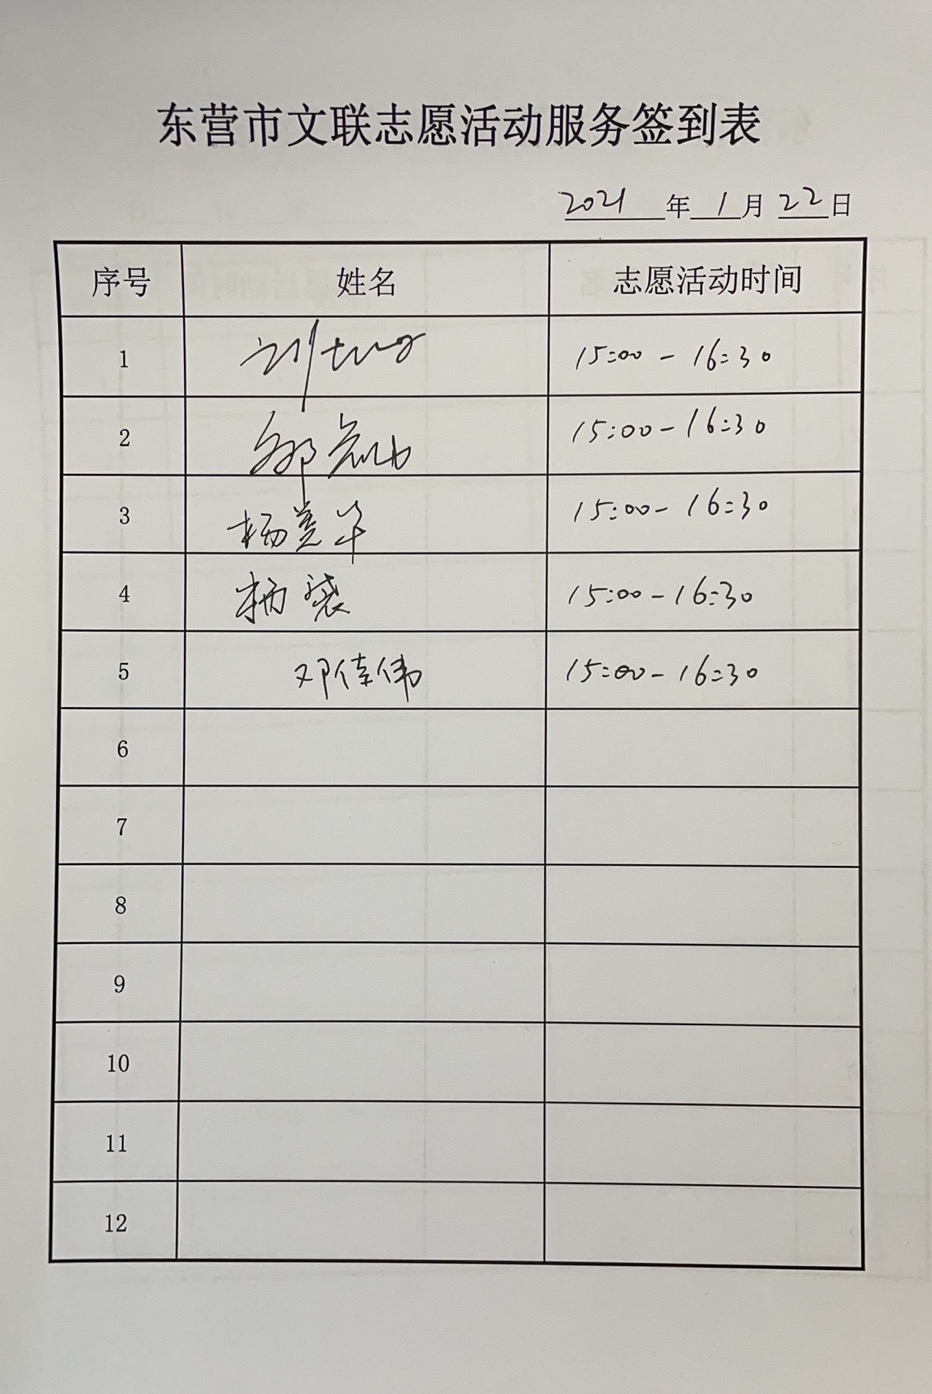 东营市文联志愿活动服务签到表
2021年1月22日
序号 姓名 志愿活动时间
1 刘 15:00-16:30
2 15:00-16:30
3 杨美华 15:00-16:30
4 杨 15:00-16:30
5 邓佳伟 15:00-16:30
6
7
8
9
10
11
12